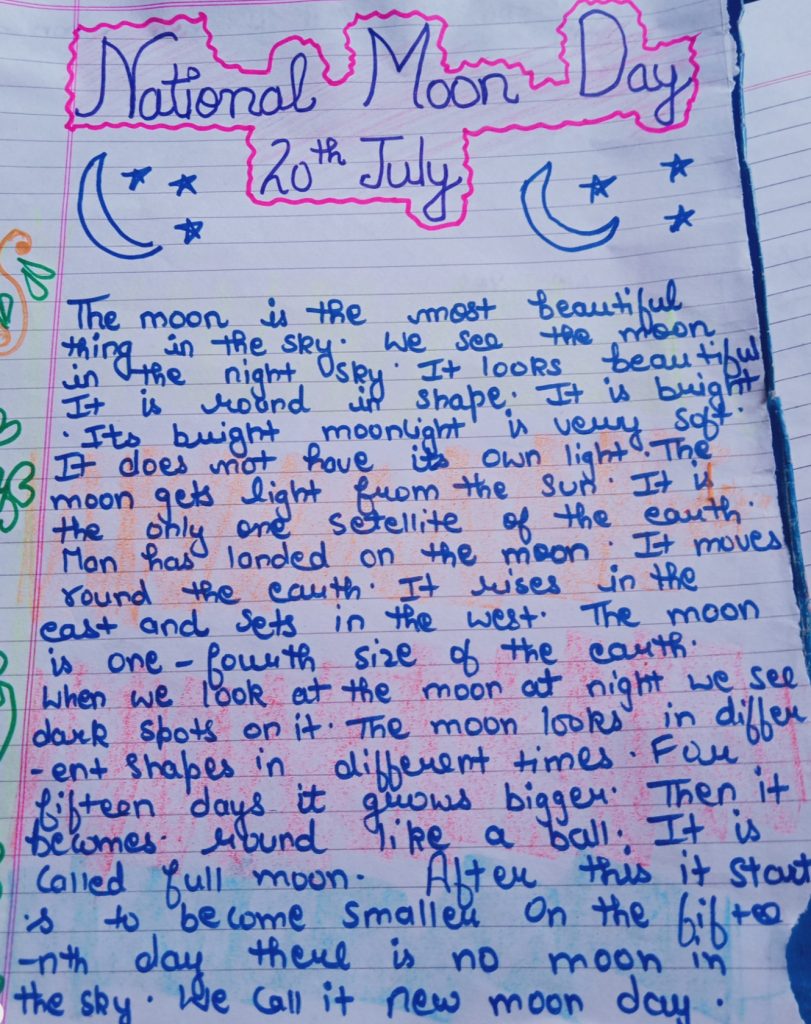 National Moon Day
20th July
The moon is the most beautiful
thing in the sky. We see the moon
in the night sky. It looks beautiful
It is round in shape. It is bright
. Its bright moonlight is very soft.
It does not have its own light. The
moon gets light from the sun. It is
the only one setellite of the earth.
Man has landed on the moon. It moves
round the earth. It rises in the
east and sets in the west. The moon
is one-fourth size of the earth.
When we look at the moon at night we see
dark spots on it. The moon looks in differ
-ent shapes in different times. For
fifteen days it grows bigger. Then it
becomes. round like a ball. It is
called full moon. After this it start
is to become smaller On the fiftee
-nth day there is no moon in
the sky. We call it new moon day.